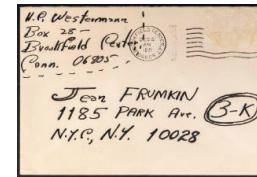 H.C. Westermann
Box 28 -
Brookfield Center,
Conn. 06805
Jean FRUMKIN
1185 PARK Ave. 3-K
N.Y.C., N.Y. 10028